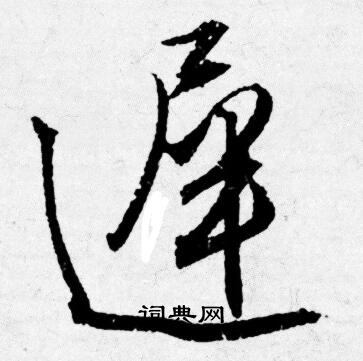 遲
词典网